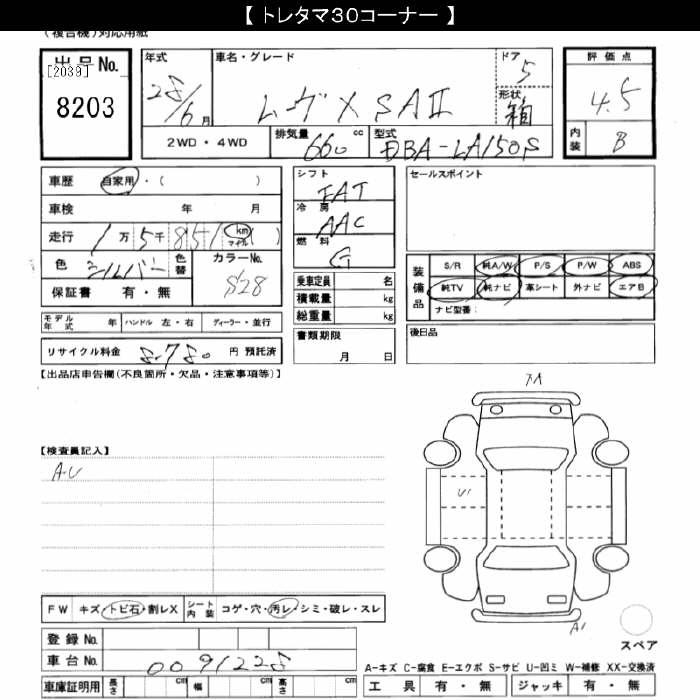 【 トレタマ30コーナー 】
(複合機)対応用紙
出品No.
[2039]
8203
年式
28/6月
車名・グレード
ムーヴ X SAII
ドア
5
形状
箱
2WD・4WD
排気量 660 cc
型式 DBA-LA150S
評価点
4.5
内装 B
車歴 自家用・( )
車検 年 月
走行 1万5千851 km マイル ( )
色 シルバー 色替
カラーNo.
S28
保証書 有・無
シフト
FAT
冷房
AAC
燃料
G
乗車定員 名
積載量 kg
総重量 kg
セールスポイント
装備品
S/R 純A/W P/S P/W ABS
純TV 純ナビ 革シート 外ナビ エアB
ナビ型番:
モデル年式 年 ハンドル 左・右 ディーラー・並行
リサイクル料金 8.780 円 預託済
書類期限
月 日
後日品
【出品店申告欄(不良箇所・欠品・注意事項等)】
【検査員記入】
A・U
U1
A1
FW キズ・トビ石・割レX
シート内装 コゲ・穴・汚レ・シミ・破レ・スレ
登録No.
車台No. 0091228
車庫証明用 長さ cm 幅 cm 高さ cm
スペア
A-キズ C-腐食 E-エクボ S-サビ U-凹ミ W-補修 XX-交換済
工具 有・無 ジャッキ 有・無